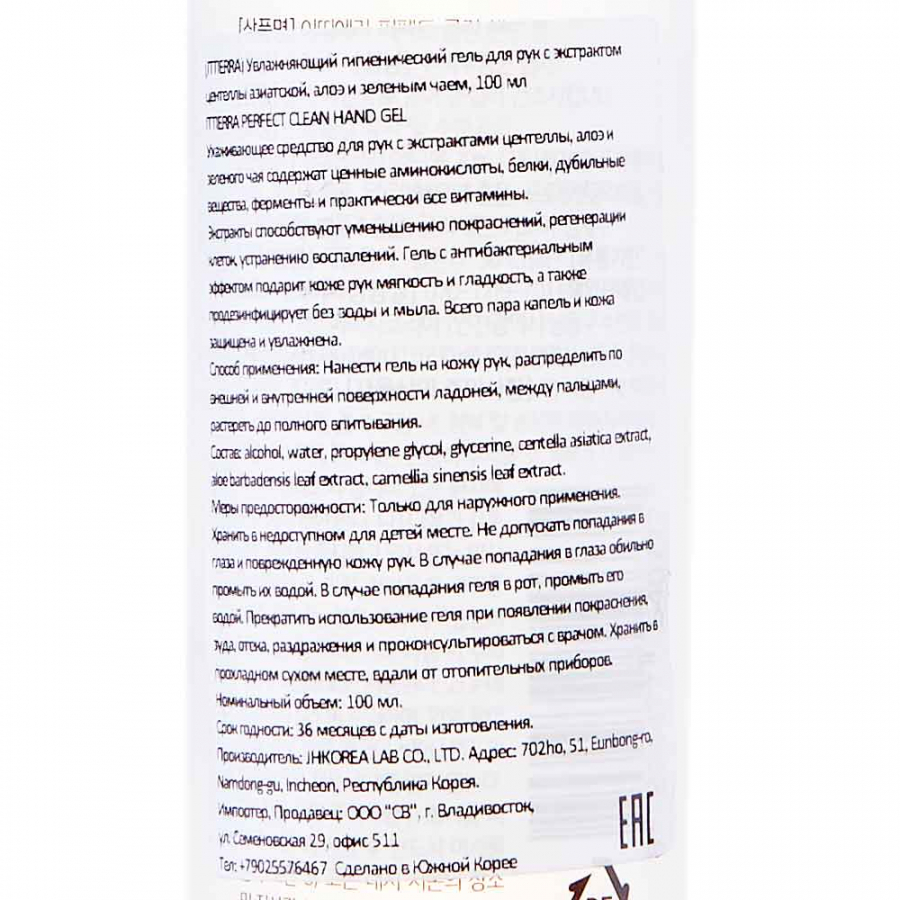 [ITTERRA] Увлажняющий гигиенический гель для рук с экстрактом
центеллы азиатской, алоэ и зеленым чаем, 100 мл
ITTERRA PERFECT CLEAN HAND GEL
Ухаживающее средство для рук с экстрактами центеллы, алоэ и
зеленого чая содержат ценные аминокислоты, белки, дубильные
вещества, ферменты и практически все витамины.
Экстракты способствуют уменьшению покраснений, регенерации
клеток, устранению воспалений. Гель с антибактериальным
эффектом подарит коже рук мягкость и гладкость, а также
продезинфицирует без воды и мыла. Всего пара капель и кожа
защищена и увлажнена.
Способ применения: Нанести гель на кожу рук, распределить по
внешней и внутренней поверхности ладоней, между пальцами,
растереть до полного впитывания.
Состав: alcohol, water, propylene glycol, glycerine, centella asiatica extract,
aloe barbadensis leaf extract, camellia sinensis leaf extract.
Меры предосторожности: Только для наружного применения.
Хранить в недоступном для детей месте. Не допускать попадания в
глаза и поврежденную кожу рук. В случае попадания в глаза обильно
промыть их водой. В случае попадания геля в рот, промыть его
водой. Прекратить использование геля при появлении покраснения,
зуда, отека, раздражения и проконсультироваться с врачом. Хранить в
прохладном сухом месте, вдали от отопительных приборов.
Номинальный объем: 100 мл.
Срок годности: 36 месяцев с даты изготовления.
Производитель: JHKOREA LAB CO., LTD. Адрес: 702ho, 51, Eunbong-ro,
Namdong-gu, Incheon, Республика Корея.
Импортер, Продавец: ООО "СВ", г. Владивосток,
ул. Семеновская 29, офис 511
Тел: +79025576467 Сделано в Южной Корее
EAC